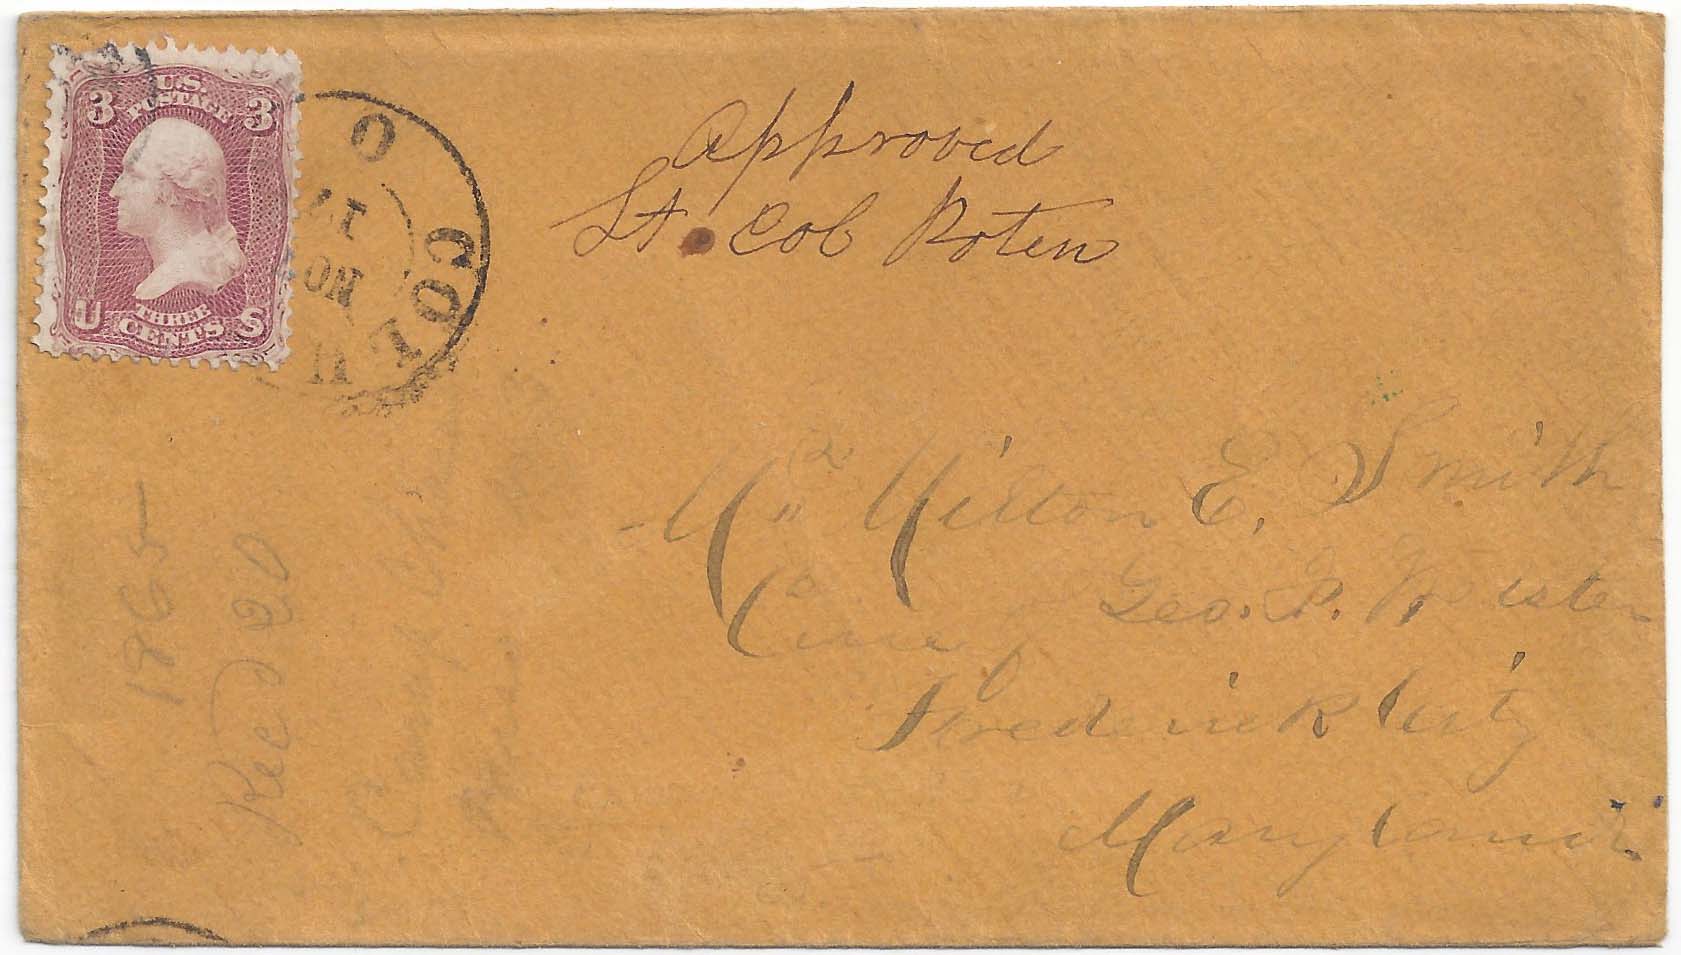 U.S. POSTAGE
3 3
THREE CENTS
U S
O COLU
17
NO
Approved
Lt. Col Poten
Mr Milton E. Smith
Care Geo. P.
Frederick City
Maryland
1865
Rec'd 20